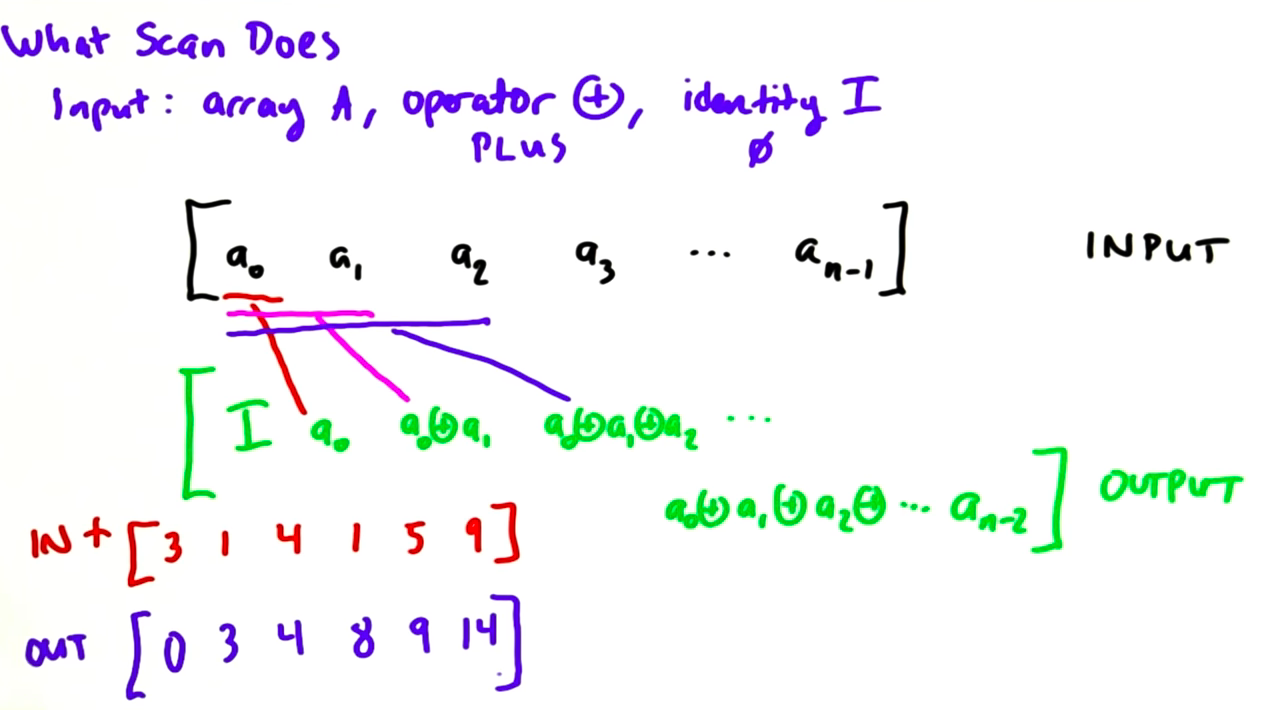 What Scan Does
Input: array A, operator ⊕, identity I
PLUS ∅
[a₀ a₁ a₂ a₃ ... aₙ₋₁] INPUT
[I a₀ a₀⊕a₁ a₀⊕a₁⊕a₂ ...
a₀⊕a₁⊕a₂⊕ ... aₙ₋₂] OUTPUT
IN + [3 1 4 1 5 9]
OUT [0 3 4 8 9 14]